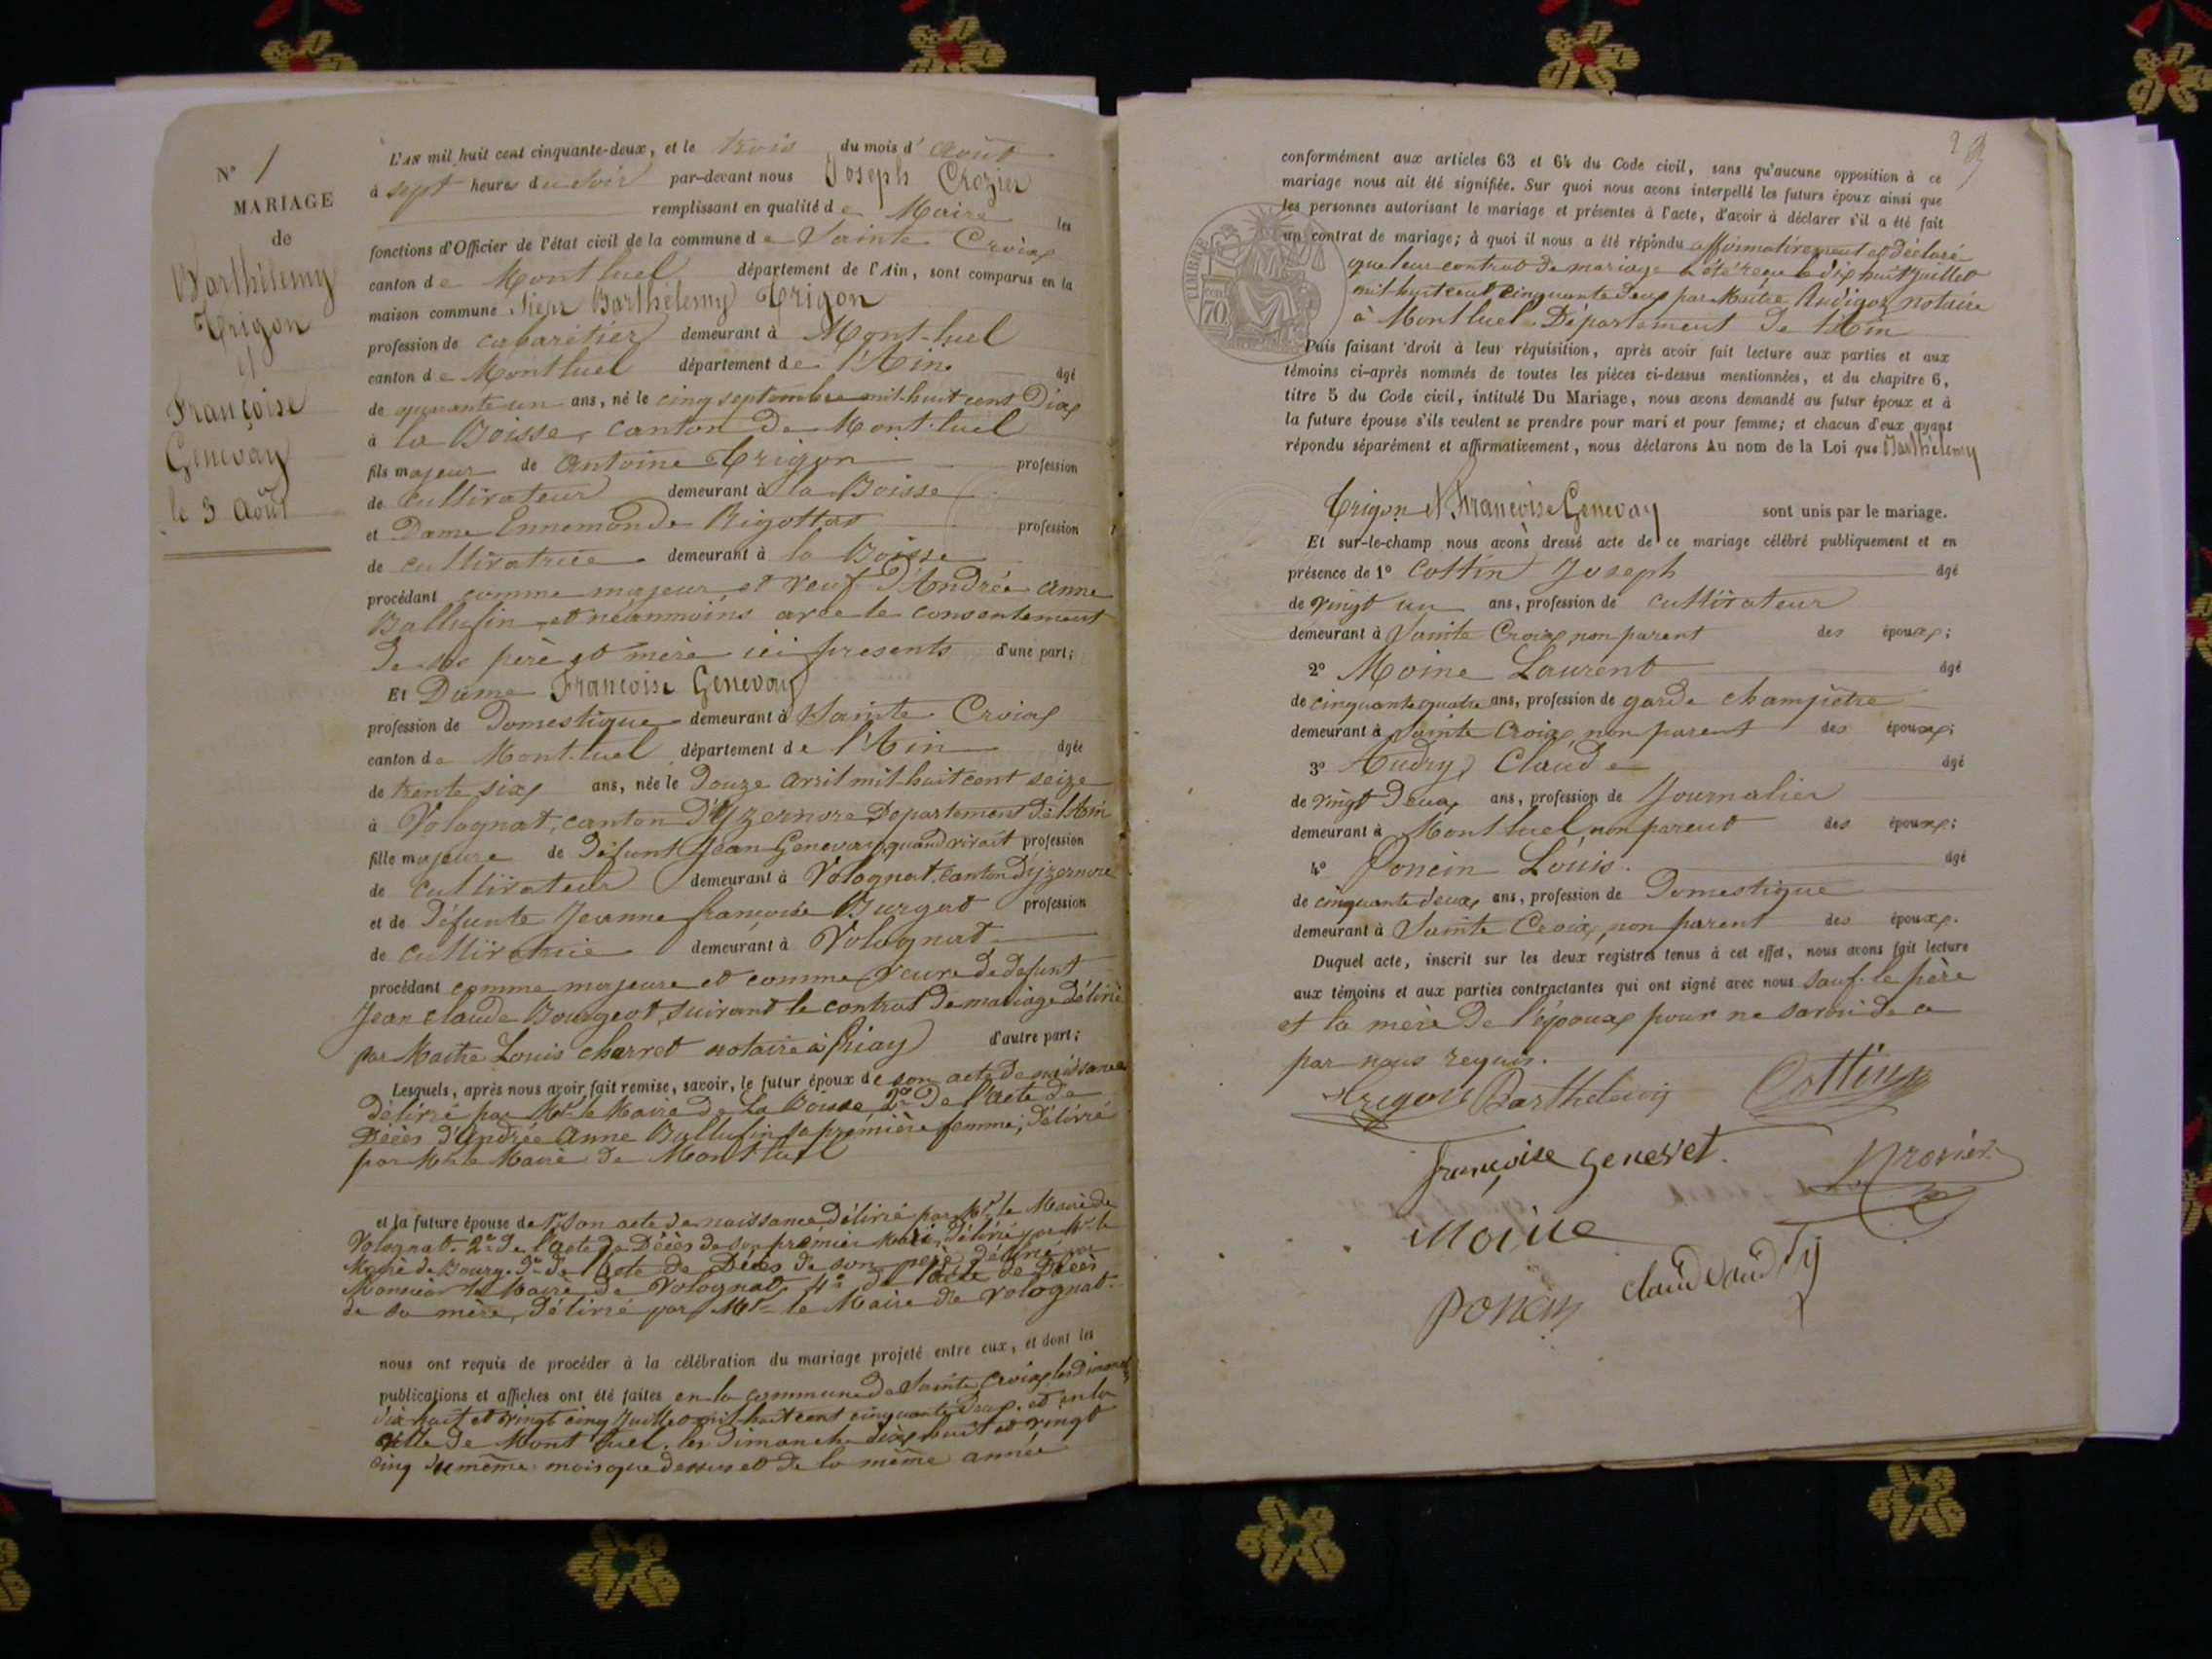 N° 1
MARIAGE
de
Barthélemy
Trigon
et
Françoise
Genevay
le 3 Août
L'AN mil huit cent cinquante-deux, et le trois du mois d' Août
à sept heures du soir par-devant nous Joseph Crozier
remplissant en qualité de Maire les
fonctions d'Officier de l'état civil de la commune de Sainte Croix
canton de Montluel département de l'Ain, sont comparus en la
maison commune Sieur Barthélemy Trigon
profession de cabaretier demeurant à Mont-luel
canton de Montluel département de l'Ain. âgé
de quarante un ans, né le cinq septembre mil-huit cent Dix
à la Boisse, canton de Mont-luel
fils majeur de Antoine Trigon profession
de cultivateur demeurant à la Boisse
et Dame Ennemonde Rigottat profession
de cultivatrice demeurant à la Boisse
procédant comme majeur et veuf d'Andrée Anne
Ballufin et néanmoins avec le consentement
de ses père et mère ici presents d'une part;
Et Dame Françoise Genevay
profession de Domestique demeurant à Sainte Croix
canton de Mont-luel département de l'Ain âgée
de trente six ans, née le Douze avril mil-huit cent seize
à Volognat, canton d'Yzernore Departement de l'Ain
fille majeure de Défunt Jean Genevay, quand vivait profession
de cultivateur demeurant à Volognat, canton d'yzernore
et de Défunte Jeanne françoise Burgat profession
de cultivatrice demeurant à Volognat
procédant comme majeure et comme veuve de defunt
Jean Claude Bourgeot, suivant le contrat de mariage délivré
par Maitre Louis charret notaire à Priay d'autre part;
Lesquels, après nous avoir fait remise, savoir, le futur époux de son acte de naissance
délivré par Mr le Maire de La Boisse, 2° De l'acte de
Décès d'Andrée Anne Ballufin sa première femme, délivré
par Mr le Maire de Montluel
et la future épouse de 1° son acte de naissance délivré par Mr. le Maire de
Volognat. 2° De l'acte de Décès de son premier Mari, délivré par Mr. le
Maire de Bourg. 3° de l'acte de Décès de son père délivré par
Monsieur le Maire de Volognat, 4° de l'acte de Décès
de sa mère, délivré par Mr. le Maire de Volognat.
nous ont requis de procéder à la célébration du mariage projeté entre eux, et dont les
publications et affiches ont été faites en la commune de Sainte Croix les Dimanches
dix huit et vingt cinq Juillet mil-huit cent cinquante deux. et en la
ville de Mont luel, les Dimanche dix huit et vingt
cinq du même mois que dessus et de la même année
conformément aux articles 63 et 64 du Code civil, sans qu'aucune opposition à ce
mariage nous ait été signifiée. Sur quoi nous avons interpellé les futurs époux ainsi que
les personnes autorisant le mariage et présentes à l'acte, d'avoir à déclarer s'il a été fait
un contrat de mariage; à quoi il nous a été répondu affirmativement et déclaré
que leur contrat de mariage a été reçu le dix huit Juillet
mil-huit cent cinquante deux par Maitre Rudigoz notaire
à Montluel Département de l'Ain
TIMBRE
70
Puis faisant droit à leur réquisition, après avoir fait lecture aux parties et aux
témoins ci-après nommés de toutes les pièces ci-dessus mentionnées, et du chapitre 6,
titre 5 du Code civil, intitulé Du Mariage, nous avons demandé au futur époux et à
la future épouse s'ils veulent se prendre pour mari et pour femme; et chacun d'eux ayant
répondu séparément et affirmativement, nous déclarons Au nom de la Loi que Barthélemy
Trigon et Françoise Genevay sont unis par le mariage.
Et sur-le-champ nous avons dressé acte de ce mariage célébré publiquement et en
présence de 1° Cottin Joseph âgé
de vingt un ans, profession de cultivateur
demeurant à Sainte Croix non parent des époux;
2° Moine Laurent âgé
de cinquante quatre ans, profession de garde champêtre
demeurant à Sainte Croix non parent des époux;
3° Audry Claude âgé
de vingt Deux ans, profession de Journalier
demeurant à Montluel non parent des époux;
4° Poncin Louis. âgé
de cinquante deux ans, profession de Domestique
demeurant à Sainte Croix, non parent des époux.
Duquel acte, inscrit sur les deux registres tenus à cet effet, nous avons fait lecture
aux témoins et aux parties contractantes qui ont signé avec nous sauf le père
et la mère de l'époux pour ne savoir de ce
par nous requis.
Trigon Barthelemy Cottin
françoise genevet. Crozier
Moine
Claud audry
Poncin